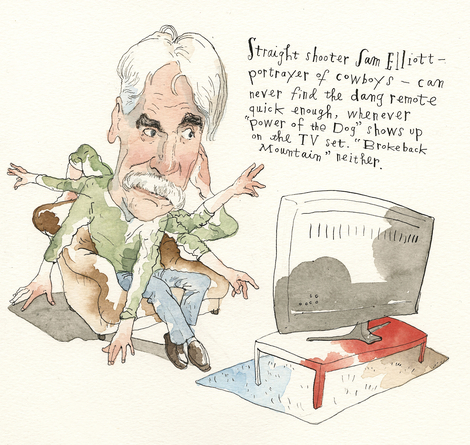 Straight shooter Sam Elliott –
portrayer of cowboys – can
never find the dang remote
quick enough, whenever
"Power of the Dog" shows up
on the TV set. "Brokeback
Mountain" neither.